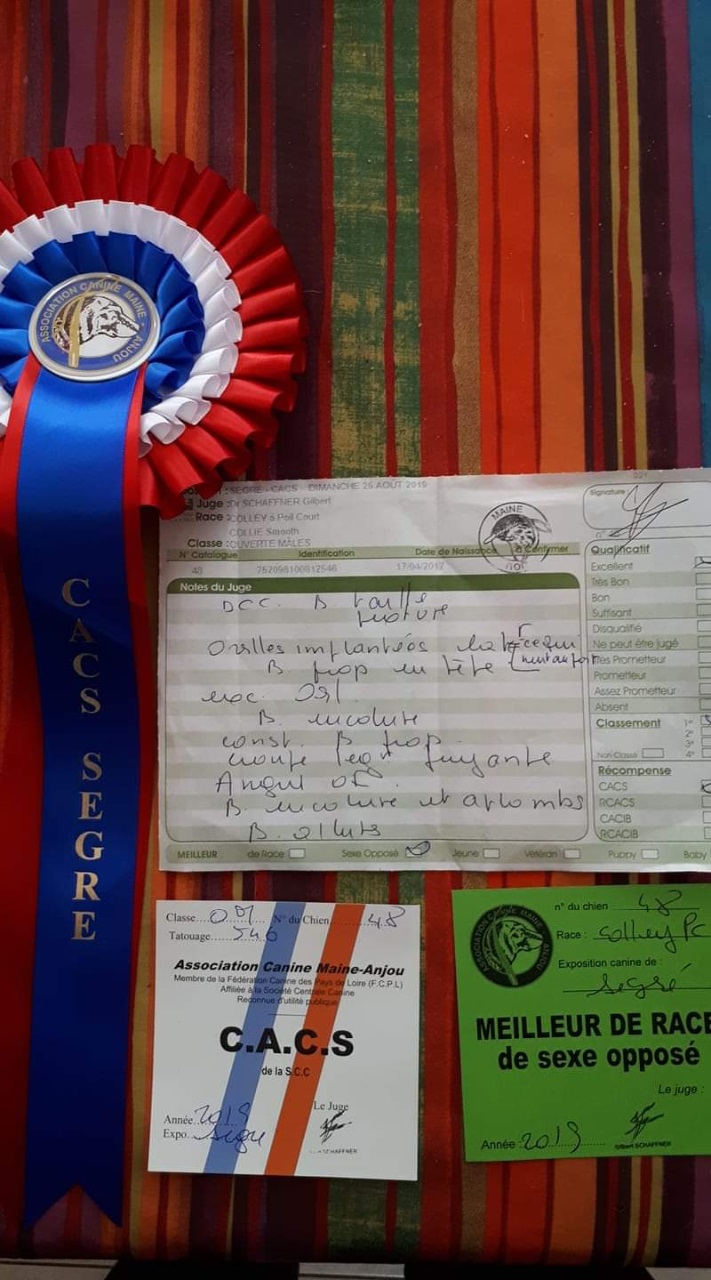 ASSOCIATION CANINE MAINE - ANJOU
CACS SEGRE
SEGRE - CACS - DIMANCHE 25 AOÛT 2019
Juge : Dr SCHAFFNER Gilbert
Race : COLLEY à Poil Court
COLLIE Smooth
Classe : OUVERTE MALES
N° Catalogue Identification Date de Naissance à Confirmer
48 17/04/2017
MAINE
Notes du Juge
DCC. B taille
Oreilles implantées
B prop en tête
B. encolure
const. B prop.
croupe leg fuyante
B. encolure et aplombs
B. allures
Signature
Qualificatif
Excellent
Très Bon
Bon
Suffisant
Disqualifié
Ne peut être jugé
Très Prometteur
Prometteur
Assez Prometteur
Absent
Classement 1er
2e
3e
Non Classé 4e
Récompense
CACS
RCACS
CACIB
RCACIB
MEILLEUR de Race Sexe Opposé Jeune Vétéran Puppy Baby
Classe... OM N° du Chien... 48
Tatouage... 546
Association Canine Maine-Anjou
Membre de la Fédération Canine des Pays de Loire (F.C.P.L)
Affiliée à la Société Centrale Canine
Reconnue d'utilité publique
C.A.C.S
de la S.C.C
Le Juge
Année 2019
Expo. Segré
SCHAFFNER
n° du chien 48
Race : Colley PC
Exposition canine de :
Segré
MEILLEUR DE RACE
de sexe opposé
Le juge :
Année : 2019
Gilbert SCHAFFNER